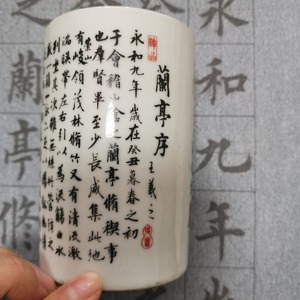 蘭亭序
王羲之
永和九年歲在癸丑暮春之初
于會稽山陰之蘭亭脩禊事
也羣賢畢至少長咸集此地
崇山
有峻領茂林脩竹又有清流激
湍暎帶左右引以為流觴曲水
列坐其次雖無絲竹管弦之
和九年
蘭亭脩